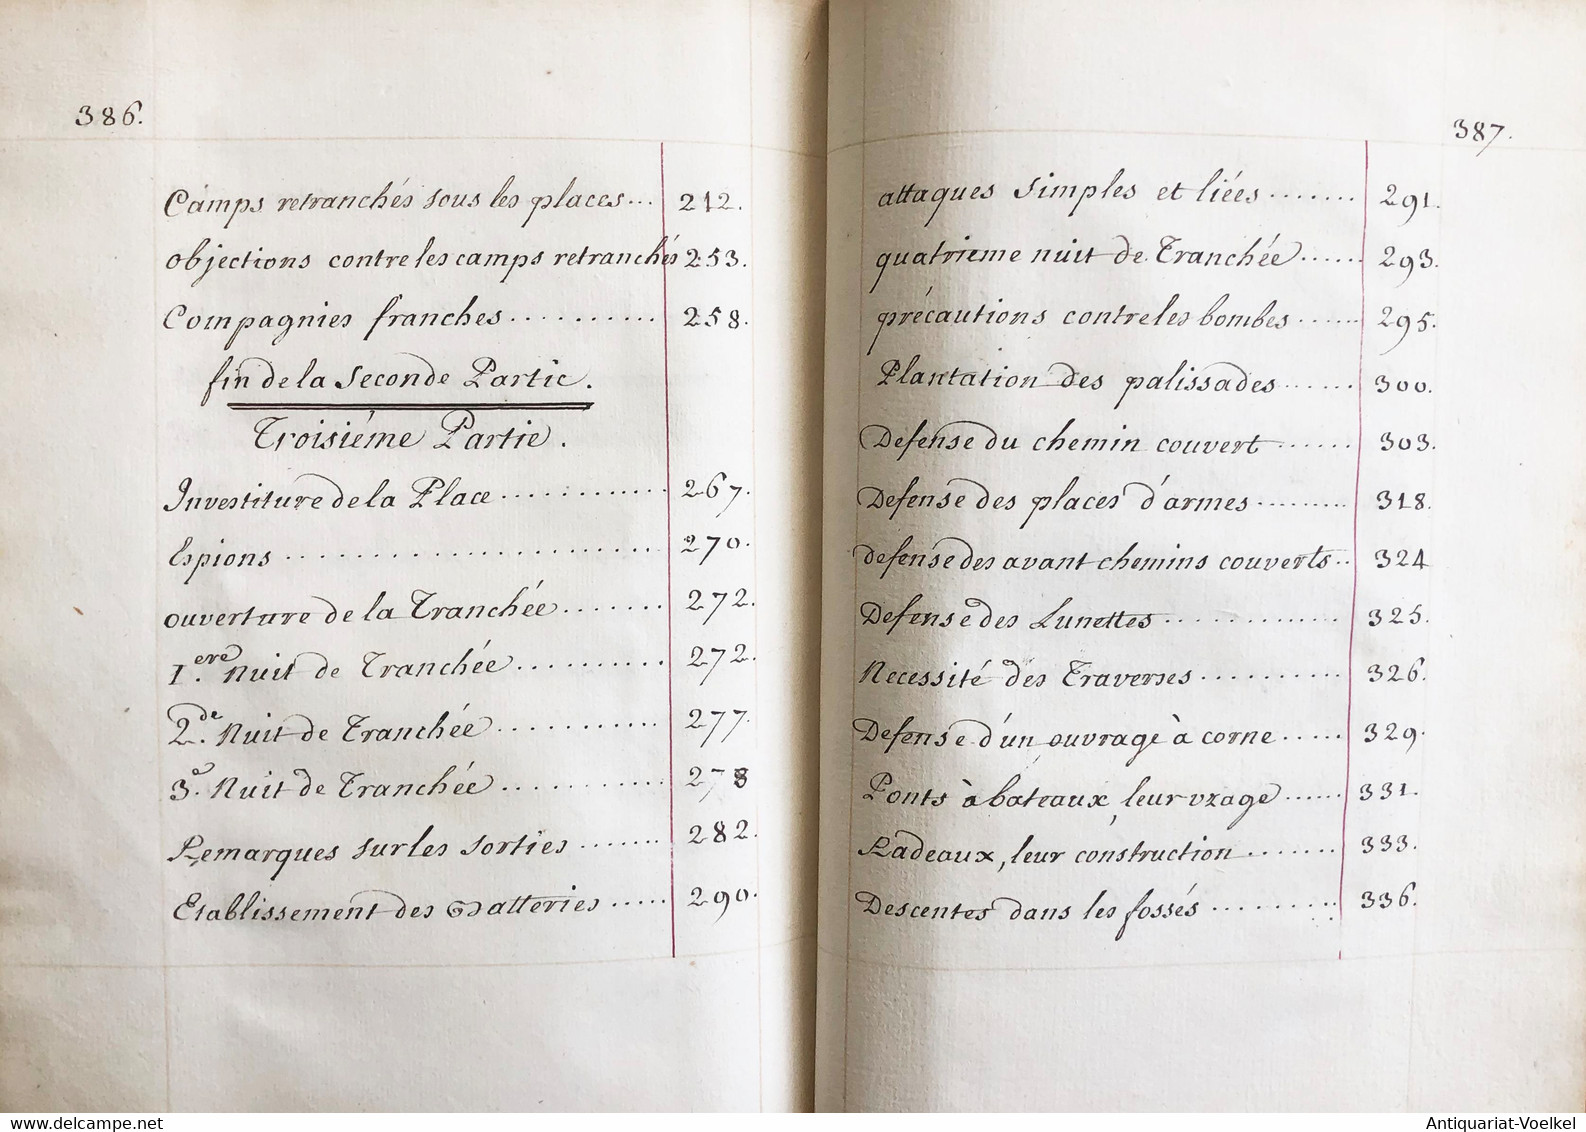 386.
Camps retranchés sous les places... 212.
objections contre les camps retranchés 253.
Compagnies franches.......... 258.
fin de la Seconde Partie.
Troisiéme Partie.
Investiture de la Place............ 267.
Espions........................ 270.
ouverture de la Tranchée....... 272.
1.ere Nuit de Tranchée.......... 272.
2.de Nuit de Tranchée............ 277.
3.e Nuit de Tranchée............ 278
Remarques sur les sorties....... 282.
Etablissement des Batteries..... 290.
387.
attaques simples et liées....... 291.
quatrieme nuit de Tranchée...... 293.
précautions contre les bombes...... 295.
Plantation des palissades...... 300.
Defense du chemin couvert...... 303.
Defense des places d'armes......... 318.
defense des avant chemins couverts.. 324
Defense des Lunettes............. 325.
Necessité des Traverses.......... 326.
Defense d'un ouvrage à corne..... 329.
Ponts à bateaux, leur uzage...... 331.
Radeaux, leur construction....... 333.
Descentes dans les fossés......... 336.
www.delcampe.net
Antiquariat-Voelkel